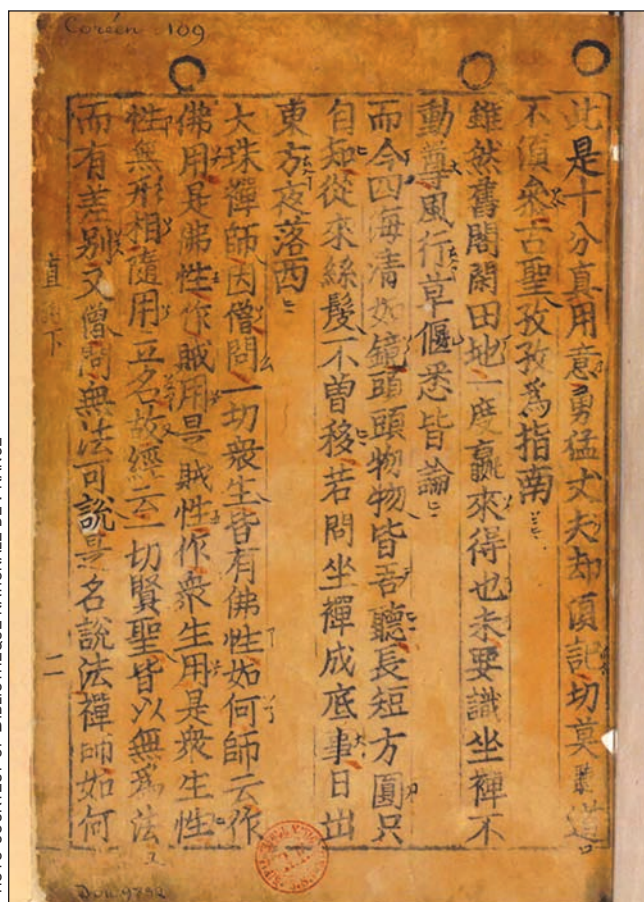 Coréen 109
此是十分真用意勇猛丈夫却須記切莫聽道
不須衆古聖孜孜爲指南
雖然舊閣閑田地一度贏來得也未要識坐禪不
動尊風行草偃悉皆論
而今四海清如鏡頭頭物物皆吾聽長短方圓只
自知從來絲髮不曾移若問坐禪成底事日出
東方夜落西
大珠禪師因僧問一切衆生皆有佛性如何師云作
佛用是佛性作賊用是賊性作衆生用是衆生性
性無形相隨用立名故經云一切賢聖皆以無爲法
而有差別又僧問無法可說是名說法禪師如何
直 下
二